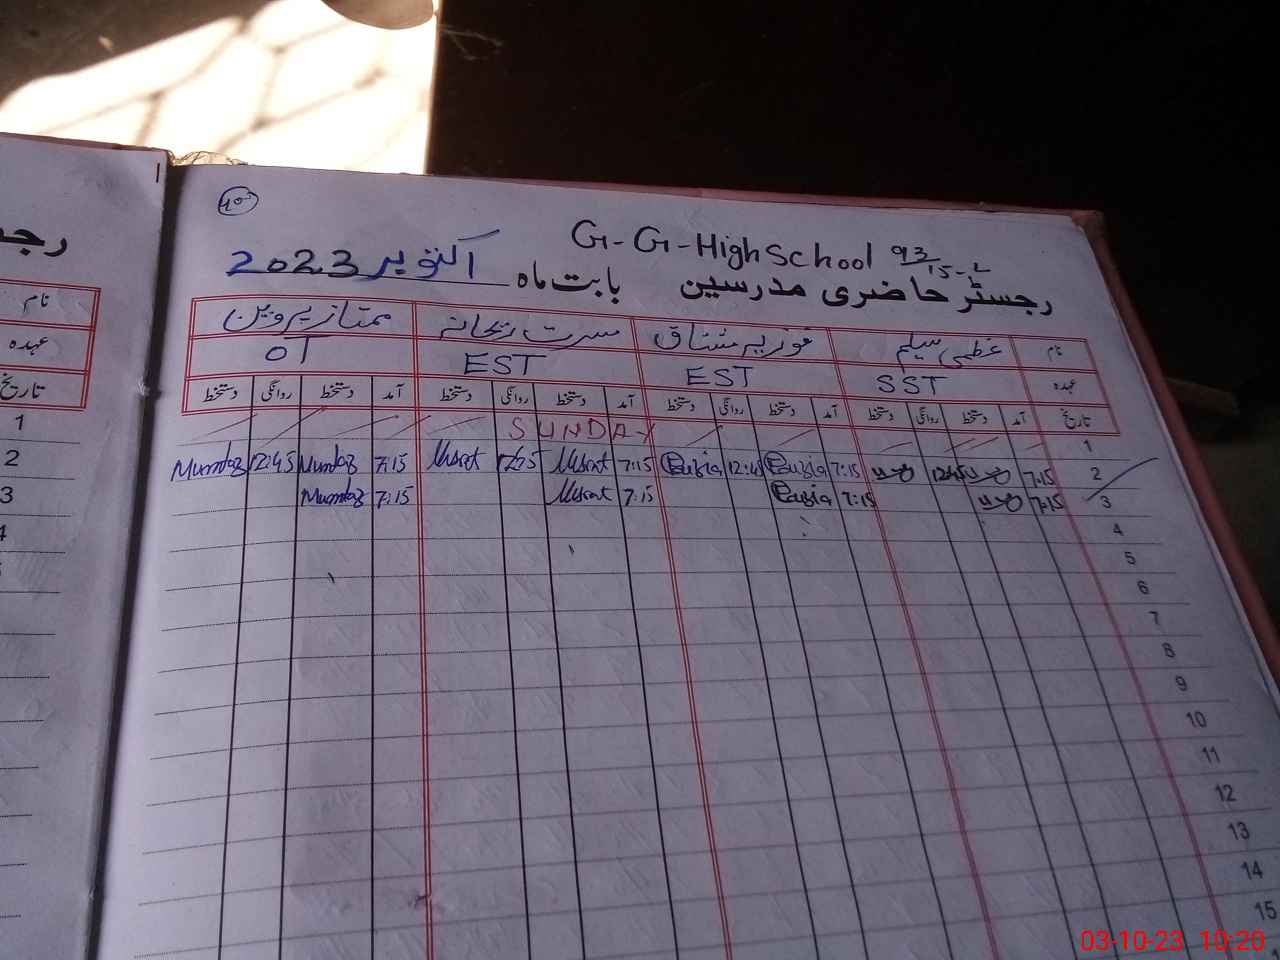 G-G-High School 93/15-L
رجسٹر حاضری مدرسین بابت ماہ اکتوبر 2023
نام عظمیٰ سلیم فوزیہ مشتاق مسرت ریحانہ ممتاز پروین
عہدہ SST EST EST OT
تاریخ آمد دستخط روانگی دستخط آمد دستخط روانگی دستخط آمد دستخط روانگی دستخط آمد دستخط روانگی دستخط
1 SUNDAY
2 7:15 12:45 7:15 Fauzia 12:45 Fauzia 7:15 Musrat 12:45 Musrat 7:15 Mumtaz 12:45 Mumtaz
3 7:15 7:15 Fauzia 7:15 Musrat 7:15 Mumtaz
4
5
6
7
8
9
10
11
12
13
14
15
رجـ
نام
عہدہ
تاریخ
1
2
3
4
03-10-23 10:20